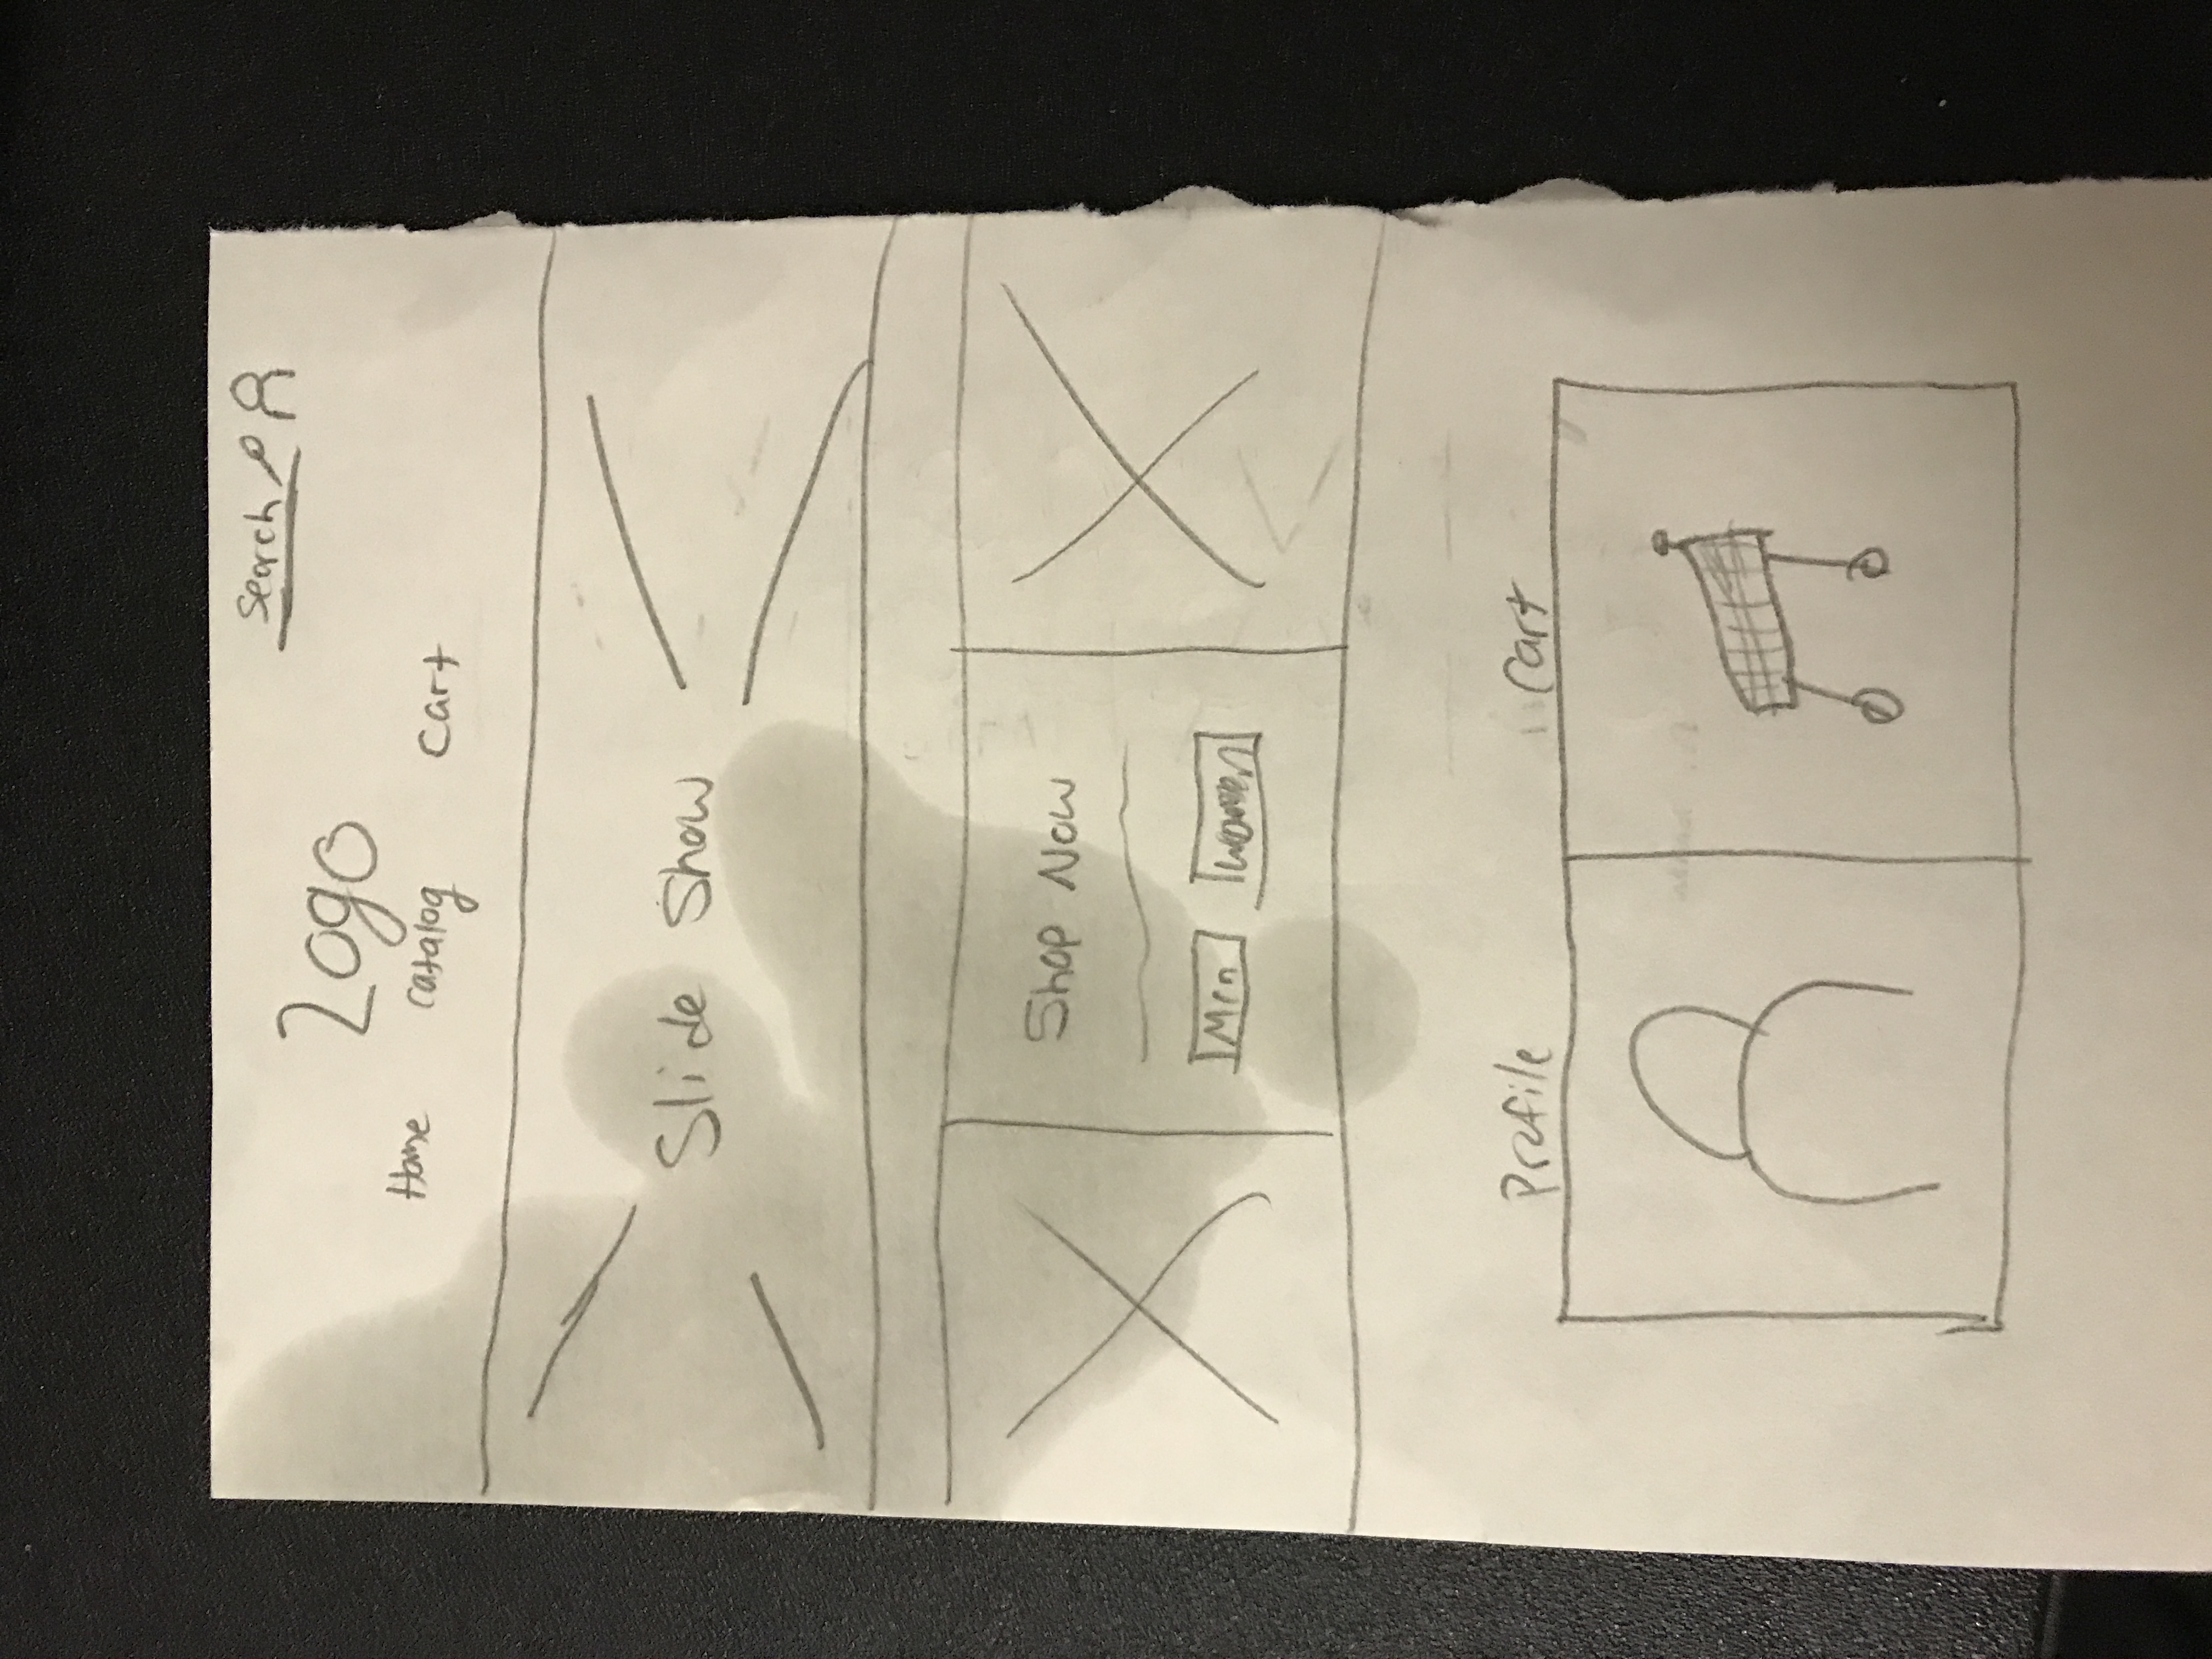 Search
Logo
Home Catalog Cart
Slide Show
Shop Now
Men Women
Profile Cart